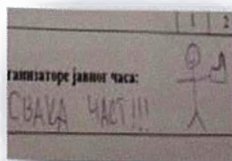 1 2
ганизаторе јавног часа:
СВАКА ЧАСТ!!!